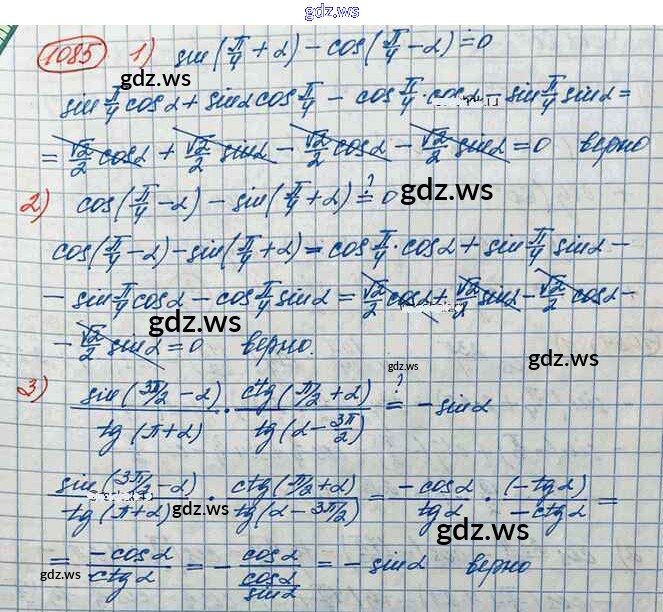 gdz.ws
1085 1) sin(π/4 + α) − cos(π/4 − α) = 0
gdz.ws
sin π/4 cosα + sinα cos π/4 − cos π/4 · cosα − sin π/4 sinα =
= √2/2 cosα + √2/2 sinα − √2/2 cosα − √2/2 sinα = 0 верно
2) cos(π/4 − α) − sin(π/4 + α) ?= 0
gdz.ws
cos(π/4 − α) − sin(π/4 + α) = cos π/4 · cosα + sin π/4 sinα −
− sin π/4 cosα − cos π/4 sinα = √2/2 cosα + √2/2 sinα − √2/2 cosα −
gdz.ws
− √2/2 sinα = 0 верно.
gdz.ws
gdz.ws
3) sin(3π/2 − α)/tg(π + α) · ctg(π/2 + α)/tg(α − 3π/2) ?= − sinα
sin(3π/2 − α)/tg(π + α) · ctg(π/2 + α)/tg(α − 3π/2) = −cosα/tgα · (−tgα)/−ctgα =
gdz.ws
gdz.ws
= −cosα/ctgα = − cosα/(cosα/sinα) = − sinα верно
gdz.ws